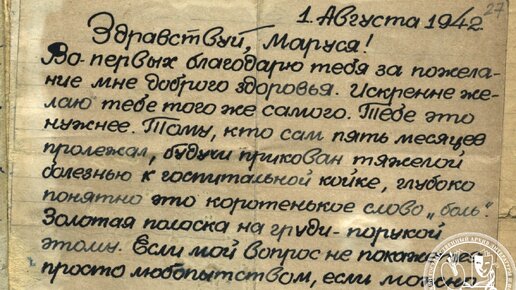 27
1. Августа 1942
Здравствуй, Маруся!
Во-первых благодарю тебя за пожела-
ние мне доброго здоровья. Искренне же-
лаю тебе того же самого. Тебе это
нужнее. Тому, кто сам пять месяцев
пролежал, будучи прикован тяжелой
болезнью к госпитальной койке, глубоко
понятно это коротенькое слово „боль".
Золотая полоска на груди - порукой
этому. Если мой вопрос не покажется
просто любопытством, если можно